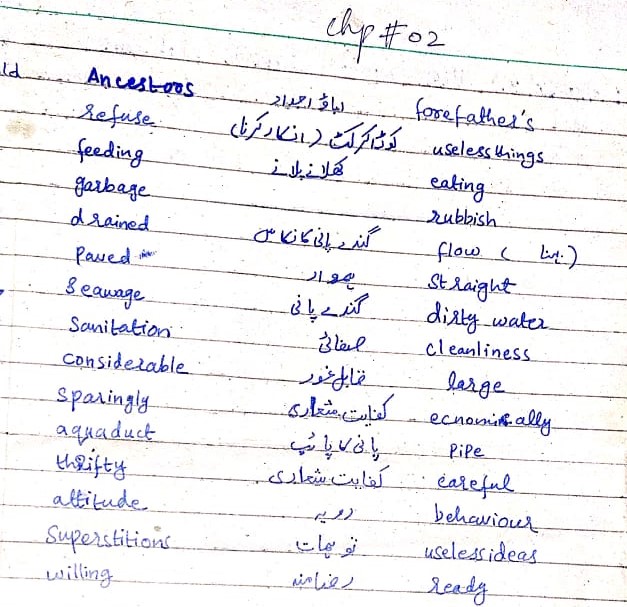 chp # 02
Ancestors اباؤ اجداد forefather's
refuse کوڑا کرکٹ (انکار کرنا) useless things
feeding کھلانے پلانے eating
garbage rubbish
drained گندے پانی کا نکاس flow ( بہنا )
Paved ہموار straight
Seawage گندے پانی dirty water
Sanitation صفائی cleanliness
Considerable قابل غور large
Sparingly کفایت شعاری ecnomically
aquaduct پانی کا پائپ PiPe
thrifty کفایت شعاری careful
attitude رویہ behaviour
Superstitions توہمات useless ideas
willing رضامند ready